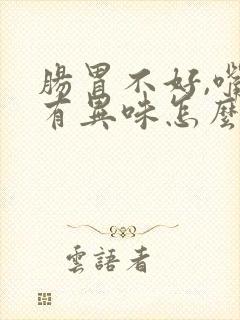 腸胃不好,嘴
有異味怎麼
雲語者